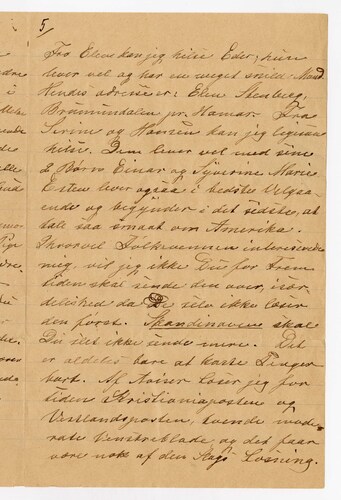 5/
Fra Eline kan jeg hilse Eder; hun
lever vel og har en meget snild Mand.
Hendes adresse er: Eline Stenberg,
Brumunddalen pr. Hamar. Fra
Serine og Hansen kan jeg ligesaa
hilse. Dem lever vel med sine
2 Børn Einar og Syverine Marie.
Esten lever ogsaa i bedste Velgaa-
ende og begynder i det sidste, at
tale saa smaat om Amerika.
Ihvorvel Folkevennen interesserede
mig, vil jeg ikke Du for Frem-
tiden skal sende den over, især-
delished da De selv ikke læser
den først. Skandinaven skal
Du slet ikke sende mere. Det
er aldeles bare at kaste Penger
bort. Af Aviser læser jeg for
tiden Kristianiaposten og
Vestlandsposten, tvende mode-
rate Venstreblade, og det faar
være nok af den Slags Læsning.